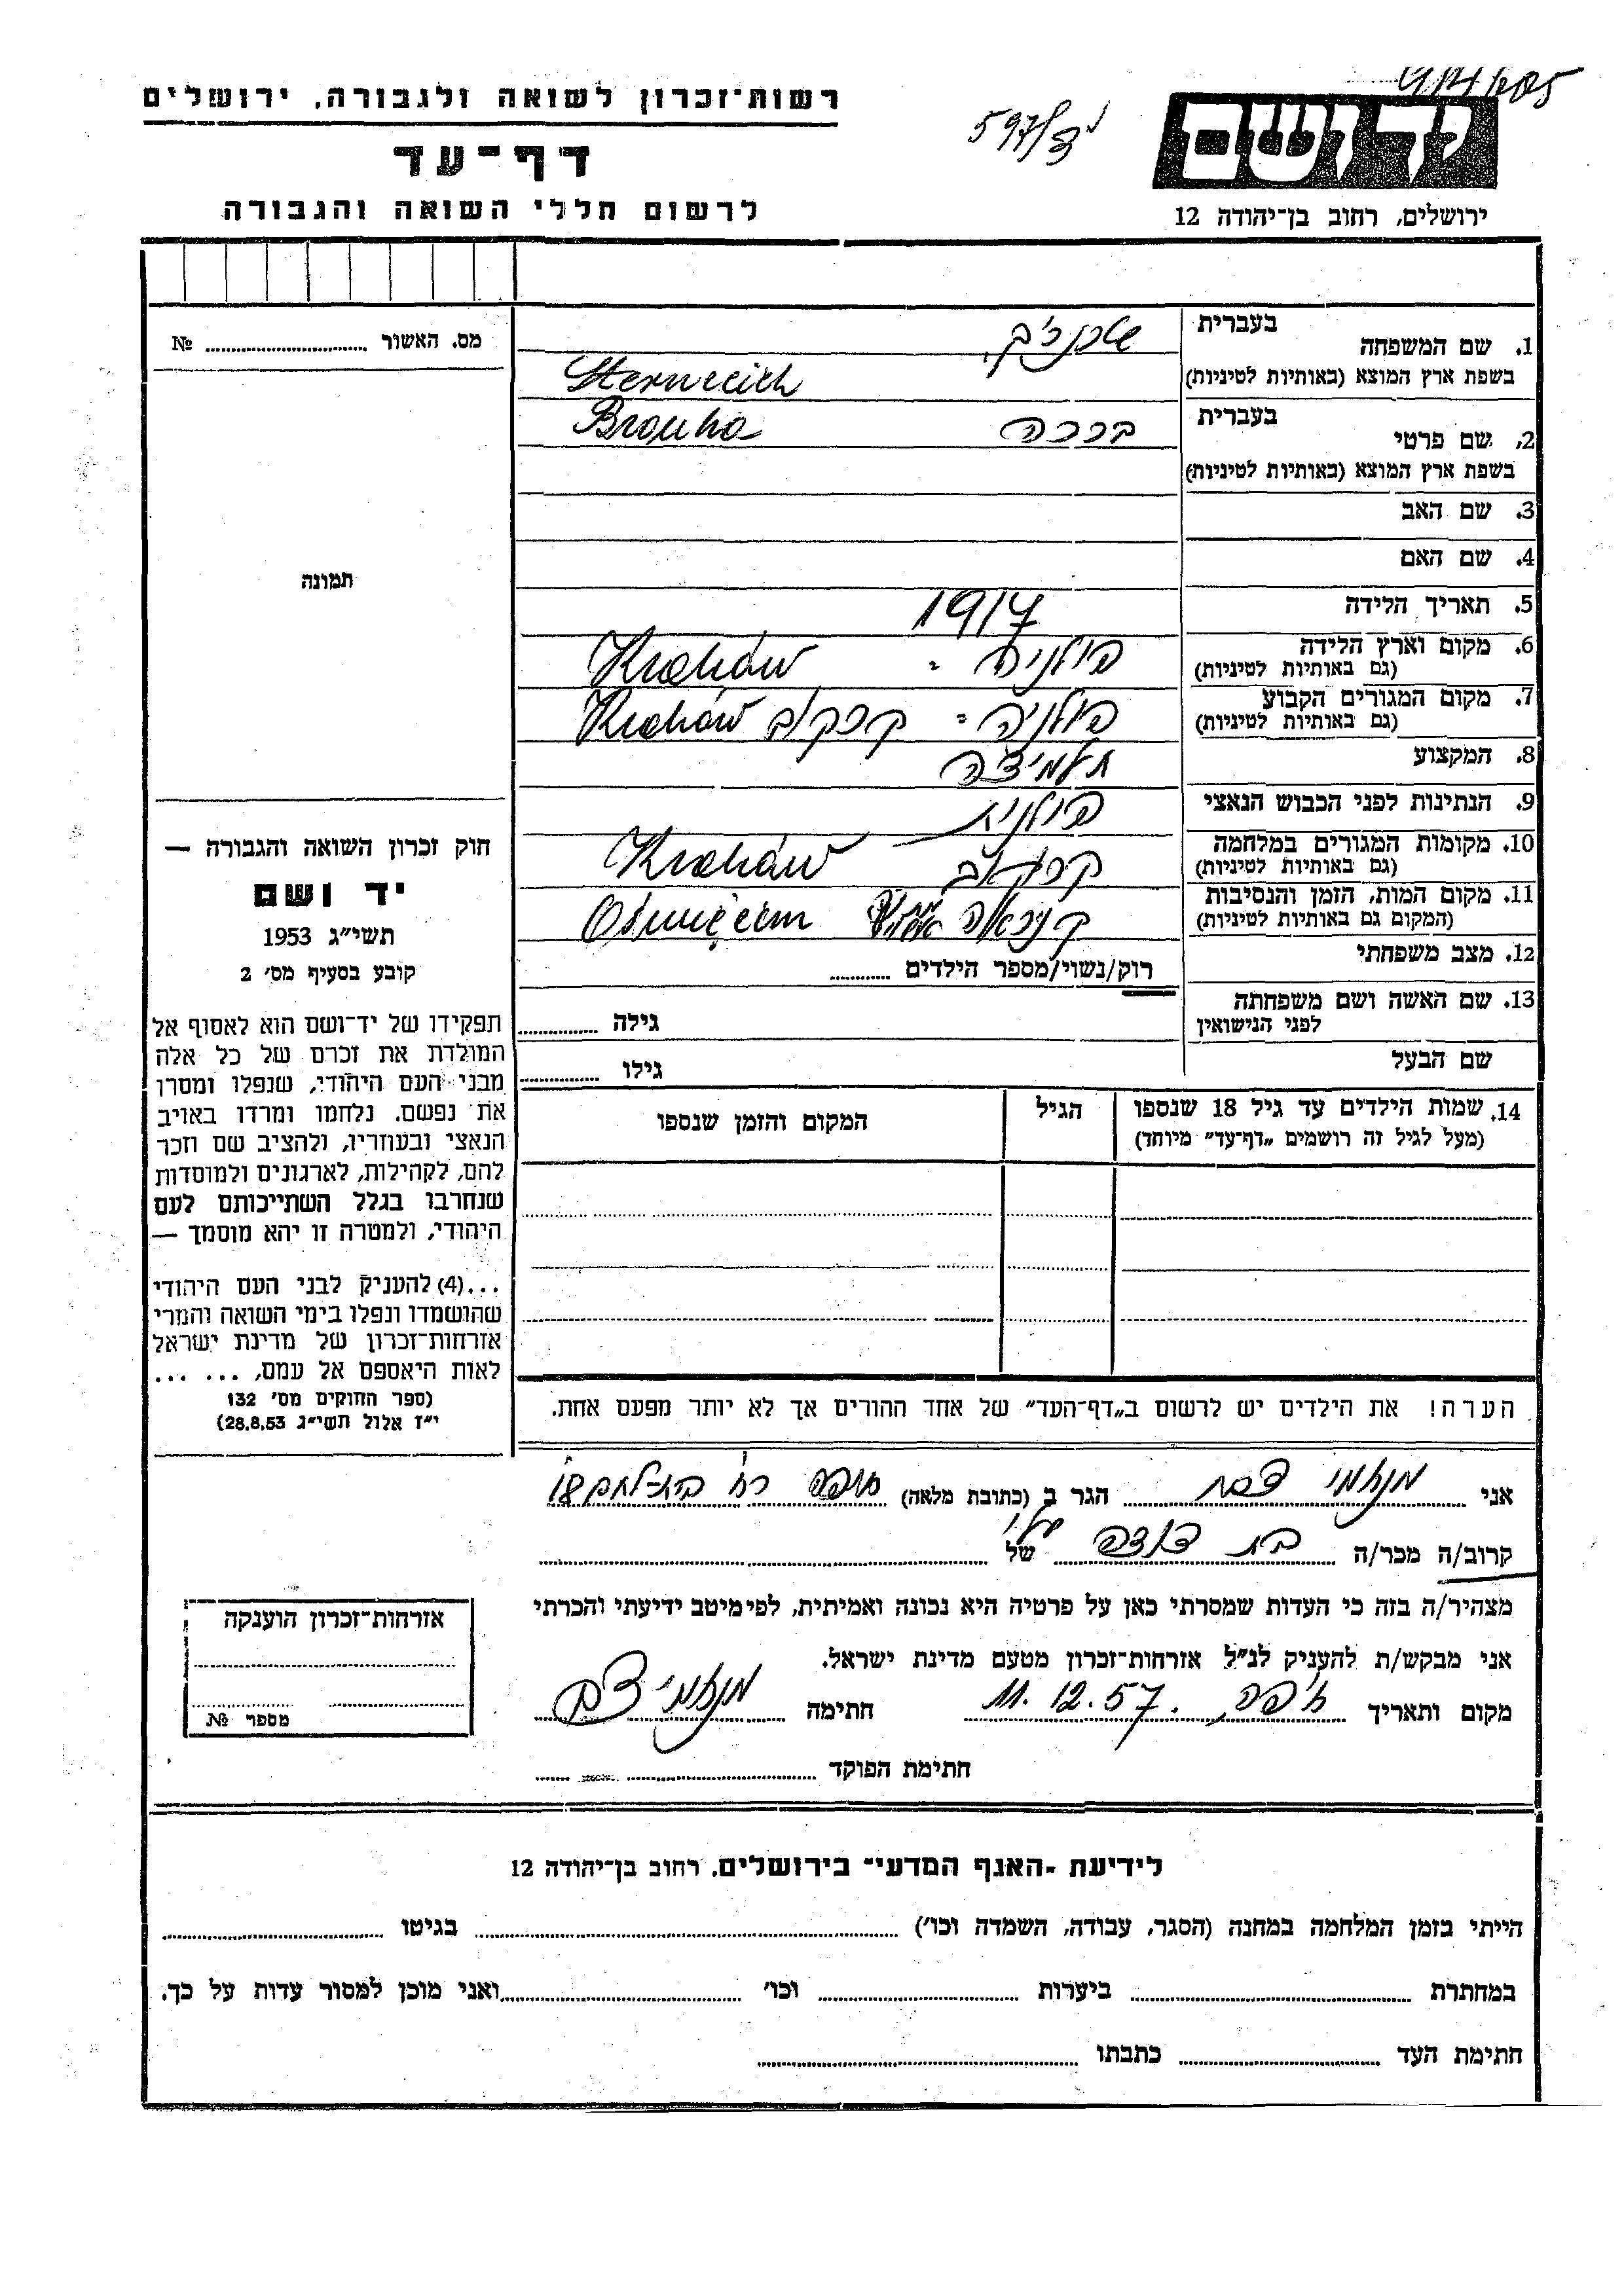 רשות־זכרון לשואה ולגבורה, ירושלים
דף־עד
לרשום חללי השואה והגבורה
ידושם
ירושלים, רחוב בן־יהודה 12
597/
מס. האשור № 
תמונה
1. שם המשפחה בעברית
Sternreich
בשפת ארץ המוצא (באותיות לטיניות)
2. שם פרטי בעברית ברכה Broncha
בשפת ארץ המוצא (באותיות לטיניות)
3. שם האב
4. שם האם
5. תאריך הלידה 1917
6. מקום וארץ הלידה פולניה - Kraków
(גם באותיות לטיניות)
7. מקום המגורים הקבוע פולניה - קרקוב Kraków
(גם באותיות לטיניות)
8. המקצוע תלמידה
9. הנתינות לפני הכבוש הנאצי פולנית
10. מקומות המגורים במלחמה קרקוב Kraków
(גם באותיות לטיניות)
11. מקום המות, הזמן והנסיבות כנראה Oświęcim
(המקום גם באותיות לטיניות)
12. מצב משפחתי רוק/נשוי/מספר הילדים
13. שם האשה ושם משפחתה גילה
לפני הנישואין
שם הבעל גילו
14. שמות הילדים עד גיל 18 שנספו הגיל המקום והזמן שנספו
(מעל לגיל זה רושמים „דף־עד” מיוחד)
הערה! את הילדים יש לרשום ב„דף־העד” של אחד ההורים אך לא יותר מפעם אחת.
חוק זכרון השואה והגבורה —
יד ושם
תשי״ג 1953
קובע בסעיף מס׳ 2
תפקידו של יד־ושם הוא לאסוף אל
המולדת את זכרם של כל אלה
מבני העם היהודי, שנפלו ומסרו
את נפשם. נלחמו ומרדו באויב
הנאצי ובעוזריו, ולהציב שם וזכר
להם, לקהילות, לארגונים ולמוסדות
שנחרבו בגלל השתייכותם לעם
היהודי, ולמטרה זו יהא מוסמך —
...(4) להעניק לבני העם היהודי
שהושמדו ונפלו בימי השואה והמרי
אזרחות־זכרון של מדינת ישראל
לאות היאספם אל עמם, ... ...
(ספר החוקים מס׳ 132
י״ז אלול תשי״ג 28.8.53)
אני הגר ב (כתובת מלאה) חיפה רח׳ בית־לחם 18
קרוב/ה מכר/ה בת דודה שלי של
מצהיר/ה בזה כי העדות שמסרתי כאן על פרטיה היא נכונה ואמיתית, לפי מיטב ידיעתי והכרתי
אני מבקש/ת להעניק לנ״ל אזרחות־זכרון מטעם מדינת ישראל.
מקום ותאריך חיפה, 11.12.57 חתימה
חתימת הפוקד
אזרחות־זכרון הוענקה
מספר №
לידיעת ״האגף המדעי״ בירושלים, רחוב בן־יהודה 12
הייתי בזמן המלחמה במחנה (הסגר, עבודה, השמדה וכו׳) בגיטו
במחתרת ביערות וכו׳ ואני מוכן למסור עדות על כך.
חתימת העד כתבתו